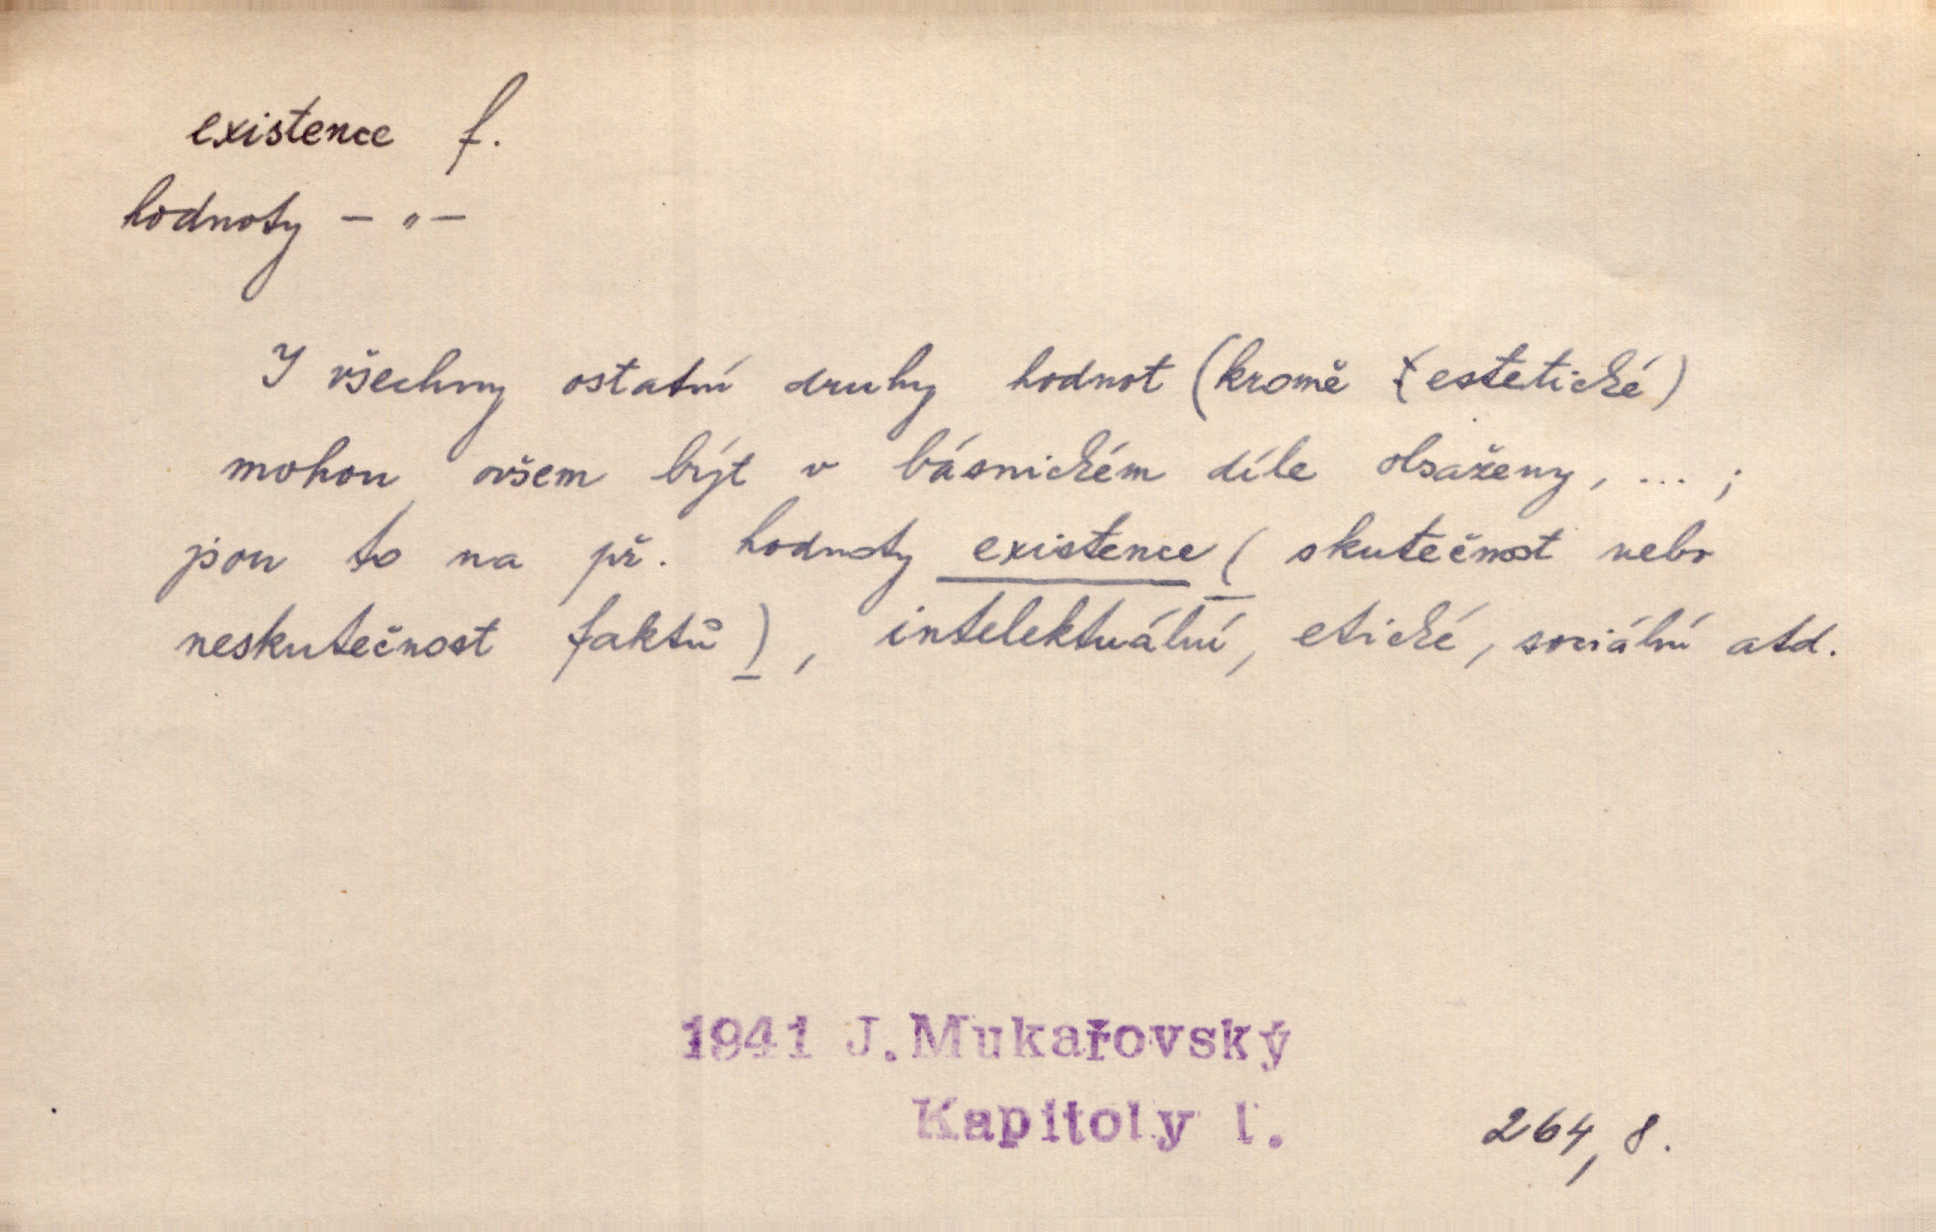 existence f.
hodnoty – „ –
I všechny ostatní druhy hodnot (kromě estetické)
mohou ovšem být v básnickém díle obsaženy, ... ;
jsou to na př. hodnoty existence ( skutečnost nebo
neskutečnost faktů ), intelektuální, etické, sociální atd.
1941 J. Mukařovský
Kapitoly I.
264, 8.